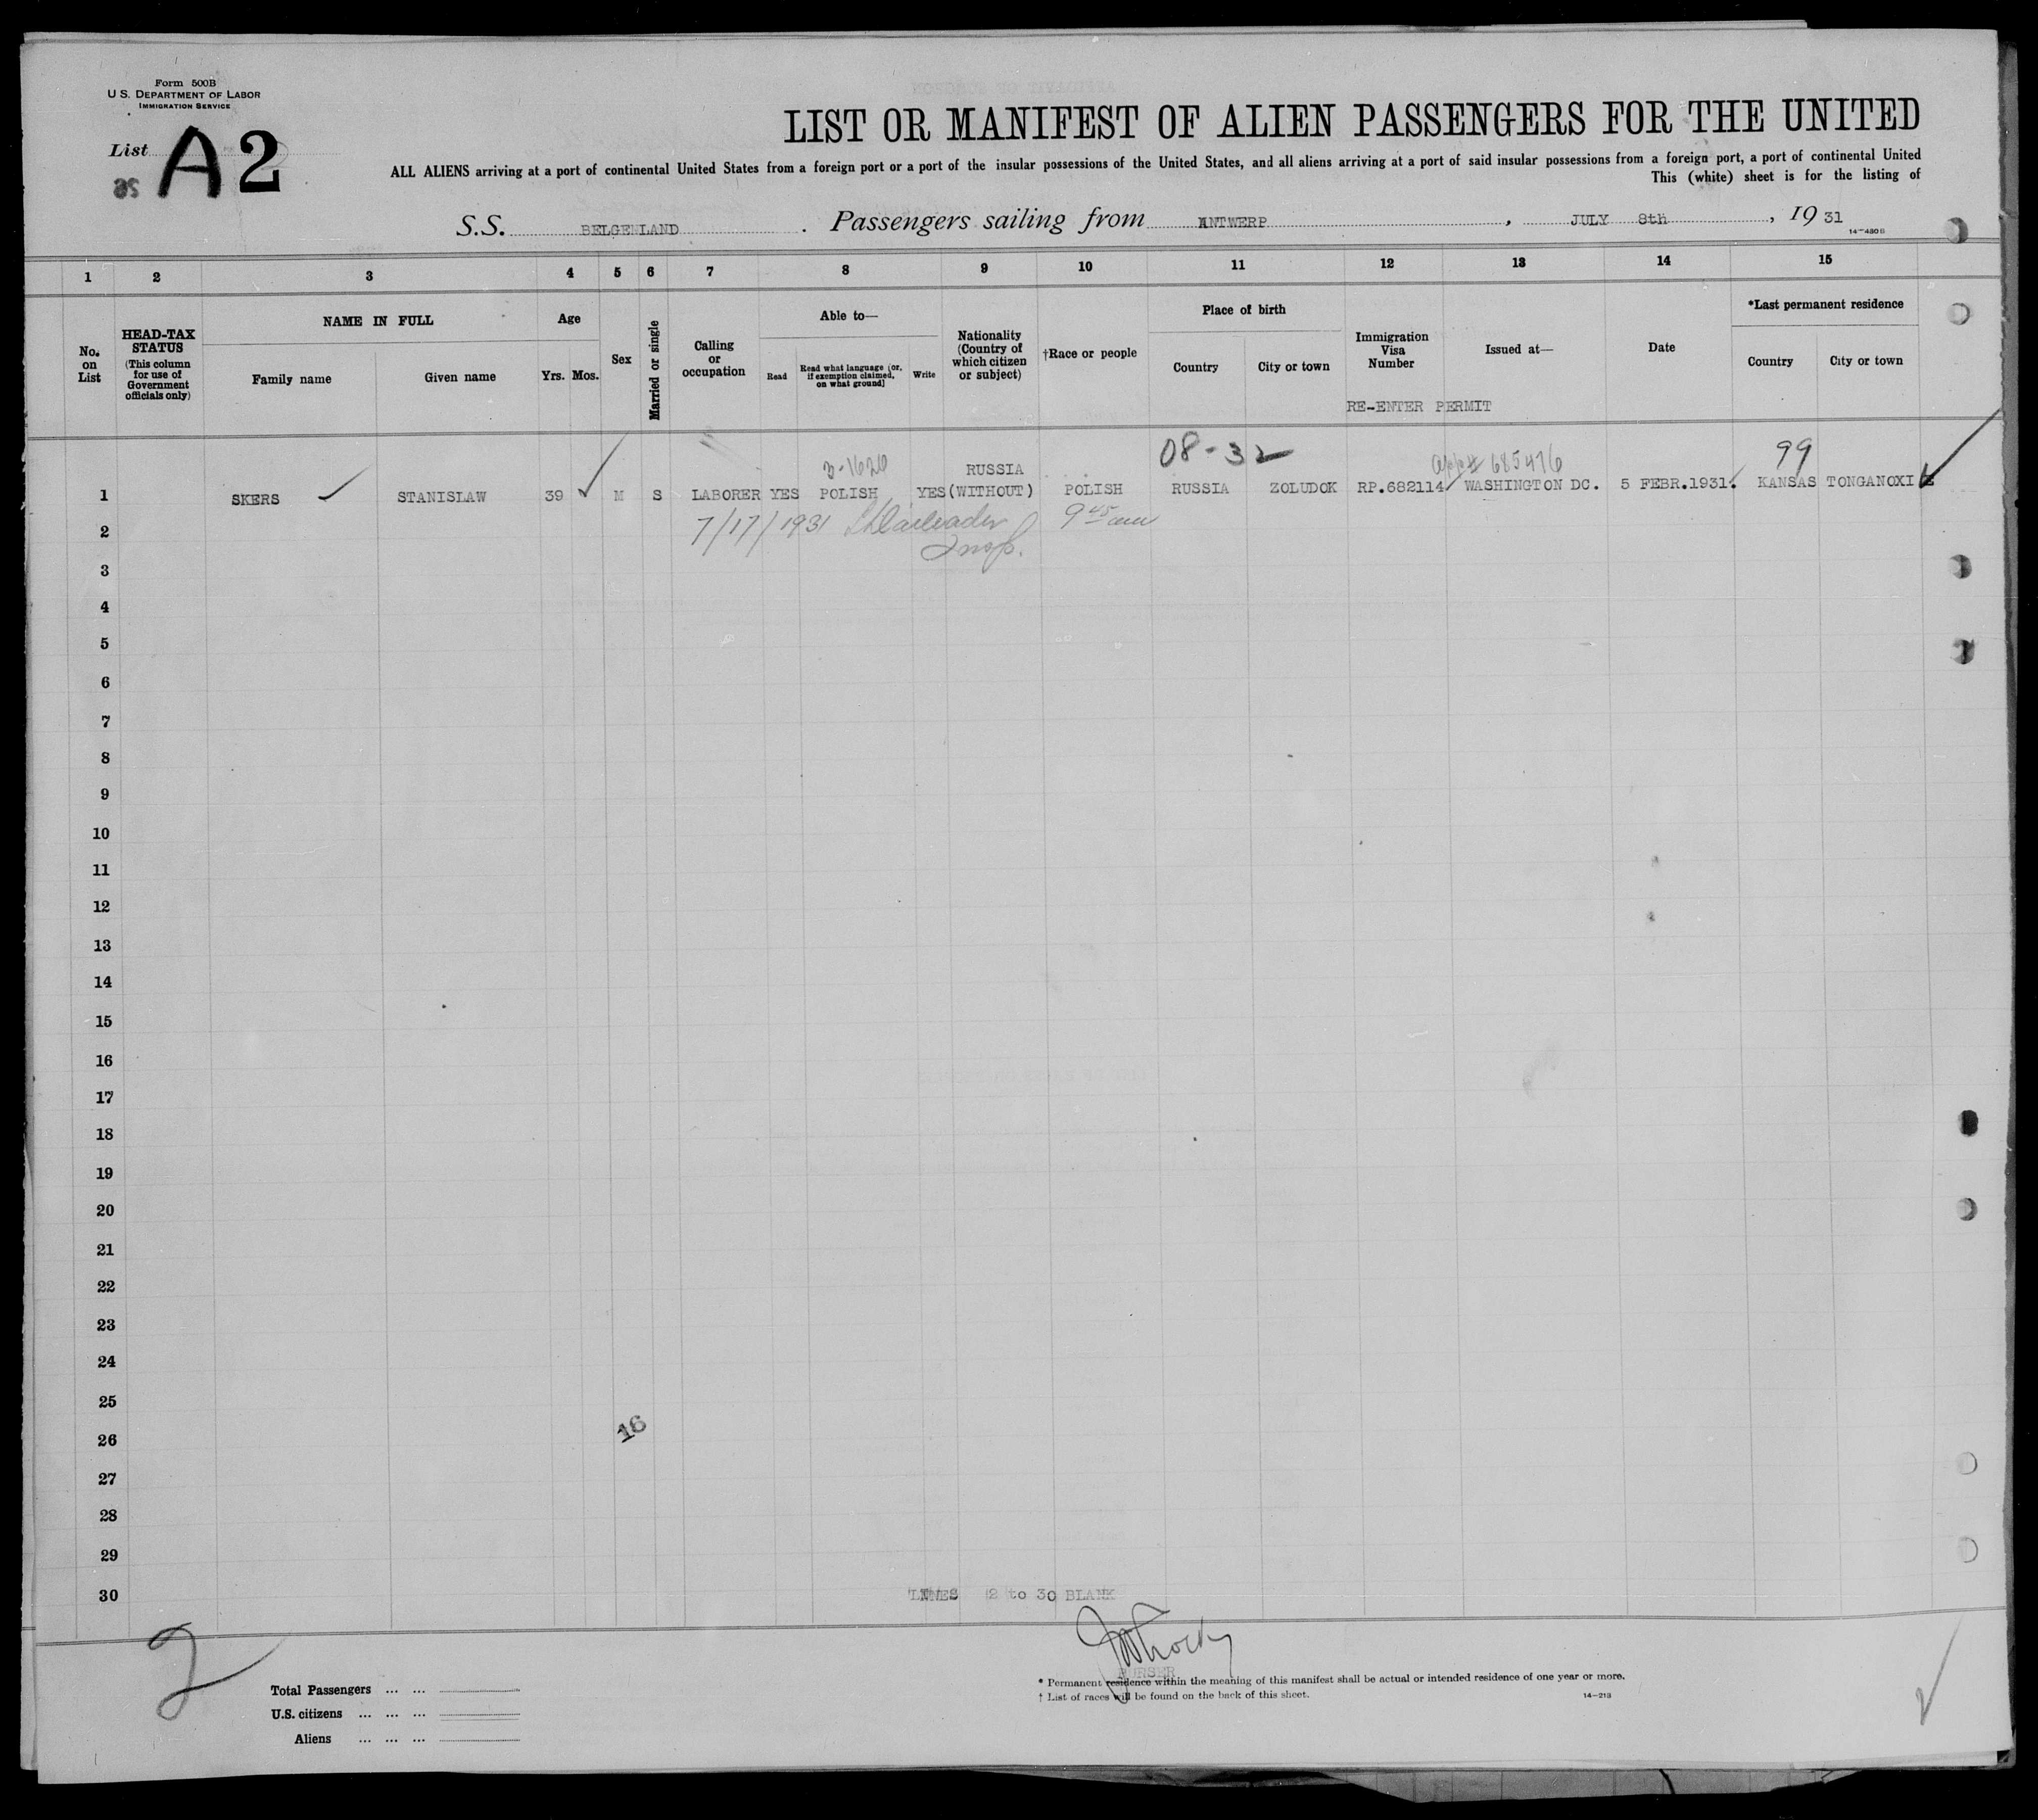 Form 500B
U.S. DEPARTMENT OF LABOR
IMMIGRATION SERVICE
List A 2
LIST OR MANIFEST OF ALIEN PASSENGERS FOR THE UNITED
ALL ALIENS arriving at a port of continental United States from a foreign port or a port of the insular possessions of the United States, and all aliens arriving at a port of said insular possessions from a foreign port, a port of continental United
This (white) sheet is for the listing of
S.S. BELGENLAND. Passengers sailing from ANTWERP, JULY 8th, 19 31
14-480B
1 2 3 4 5 6 7 8 9 10 11 12 13 14 15
No. on List
HEAD-TAX STATUS (This column for use of Government officials only)
NAME IN FULL
Family name Given name
Age
Yrs. Mos.
Sex
Married or single
Calling or occupation
Able to—
Read
Read what language [or, if exemption claimed, on what ground]
Write
Nationality (Country of which citizen or subject)
†Race or people
Place of birth
Country City or town
Immigration Visa Number
RE-ENTER PERMIT
Issued at—
Date
*Last permanent residence
Country City or town
3-1620 RUSSIA 08-32 685476 99
1 SKERS STANISLAW 39 M S LABORER YES POLISH YES (WITHOUT) POLISH RUSSIA ZOLUDOK RP.682114 WASHINGTON DC. 5 FEBR.1931. KANSAS TONGANOXIE
2 7/17/1931 9 45 am
Insp.
3
4
5
6
7
8
9
10
11
12
13
14
15
16
17
18
19
20
21
22
23
24
25
26
16
27
28
29
30 LINES 2 to 30 BLANK
2
PURSER
Total Passengers ... ...
U.S. citizens ... ... ...
Aliens ... ... ...
* Permanent residence within the meaning of this manifest shall be actual or intended residence of one year or more.
† List of races will be found on the back of this sheet.
14-213